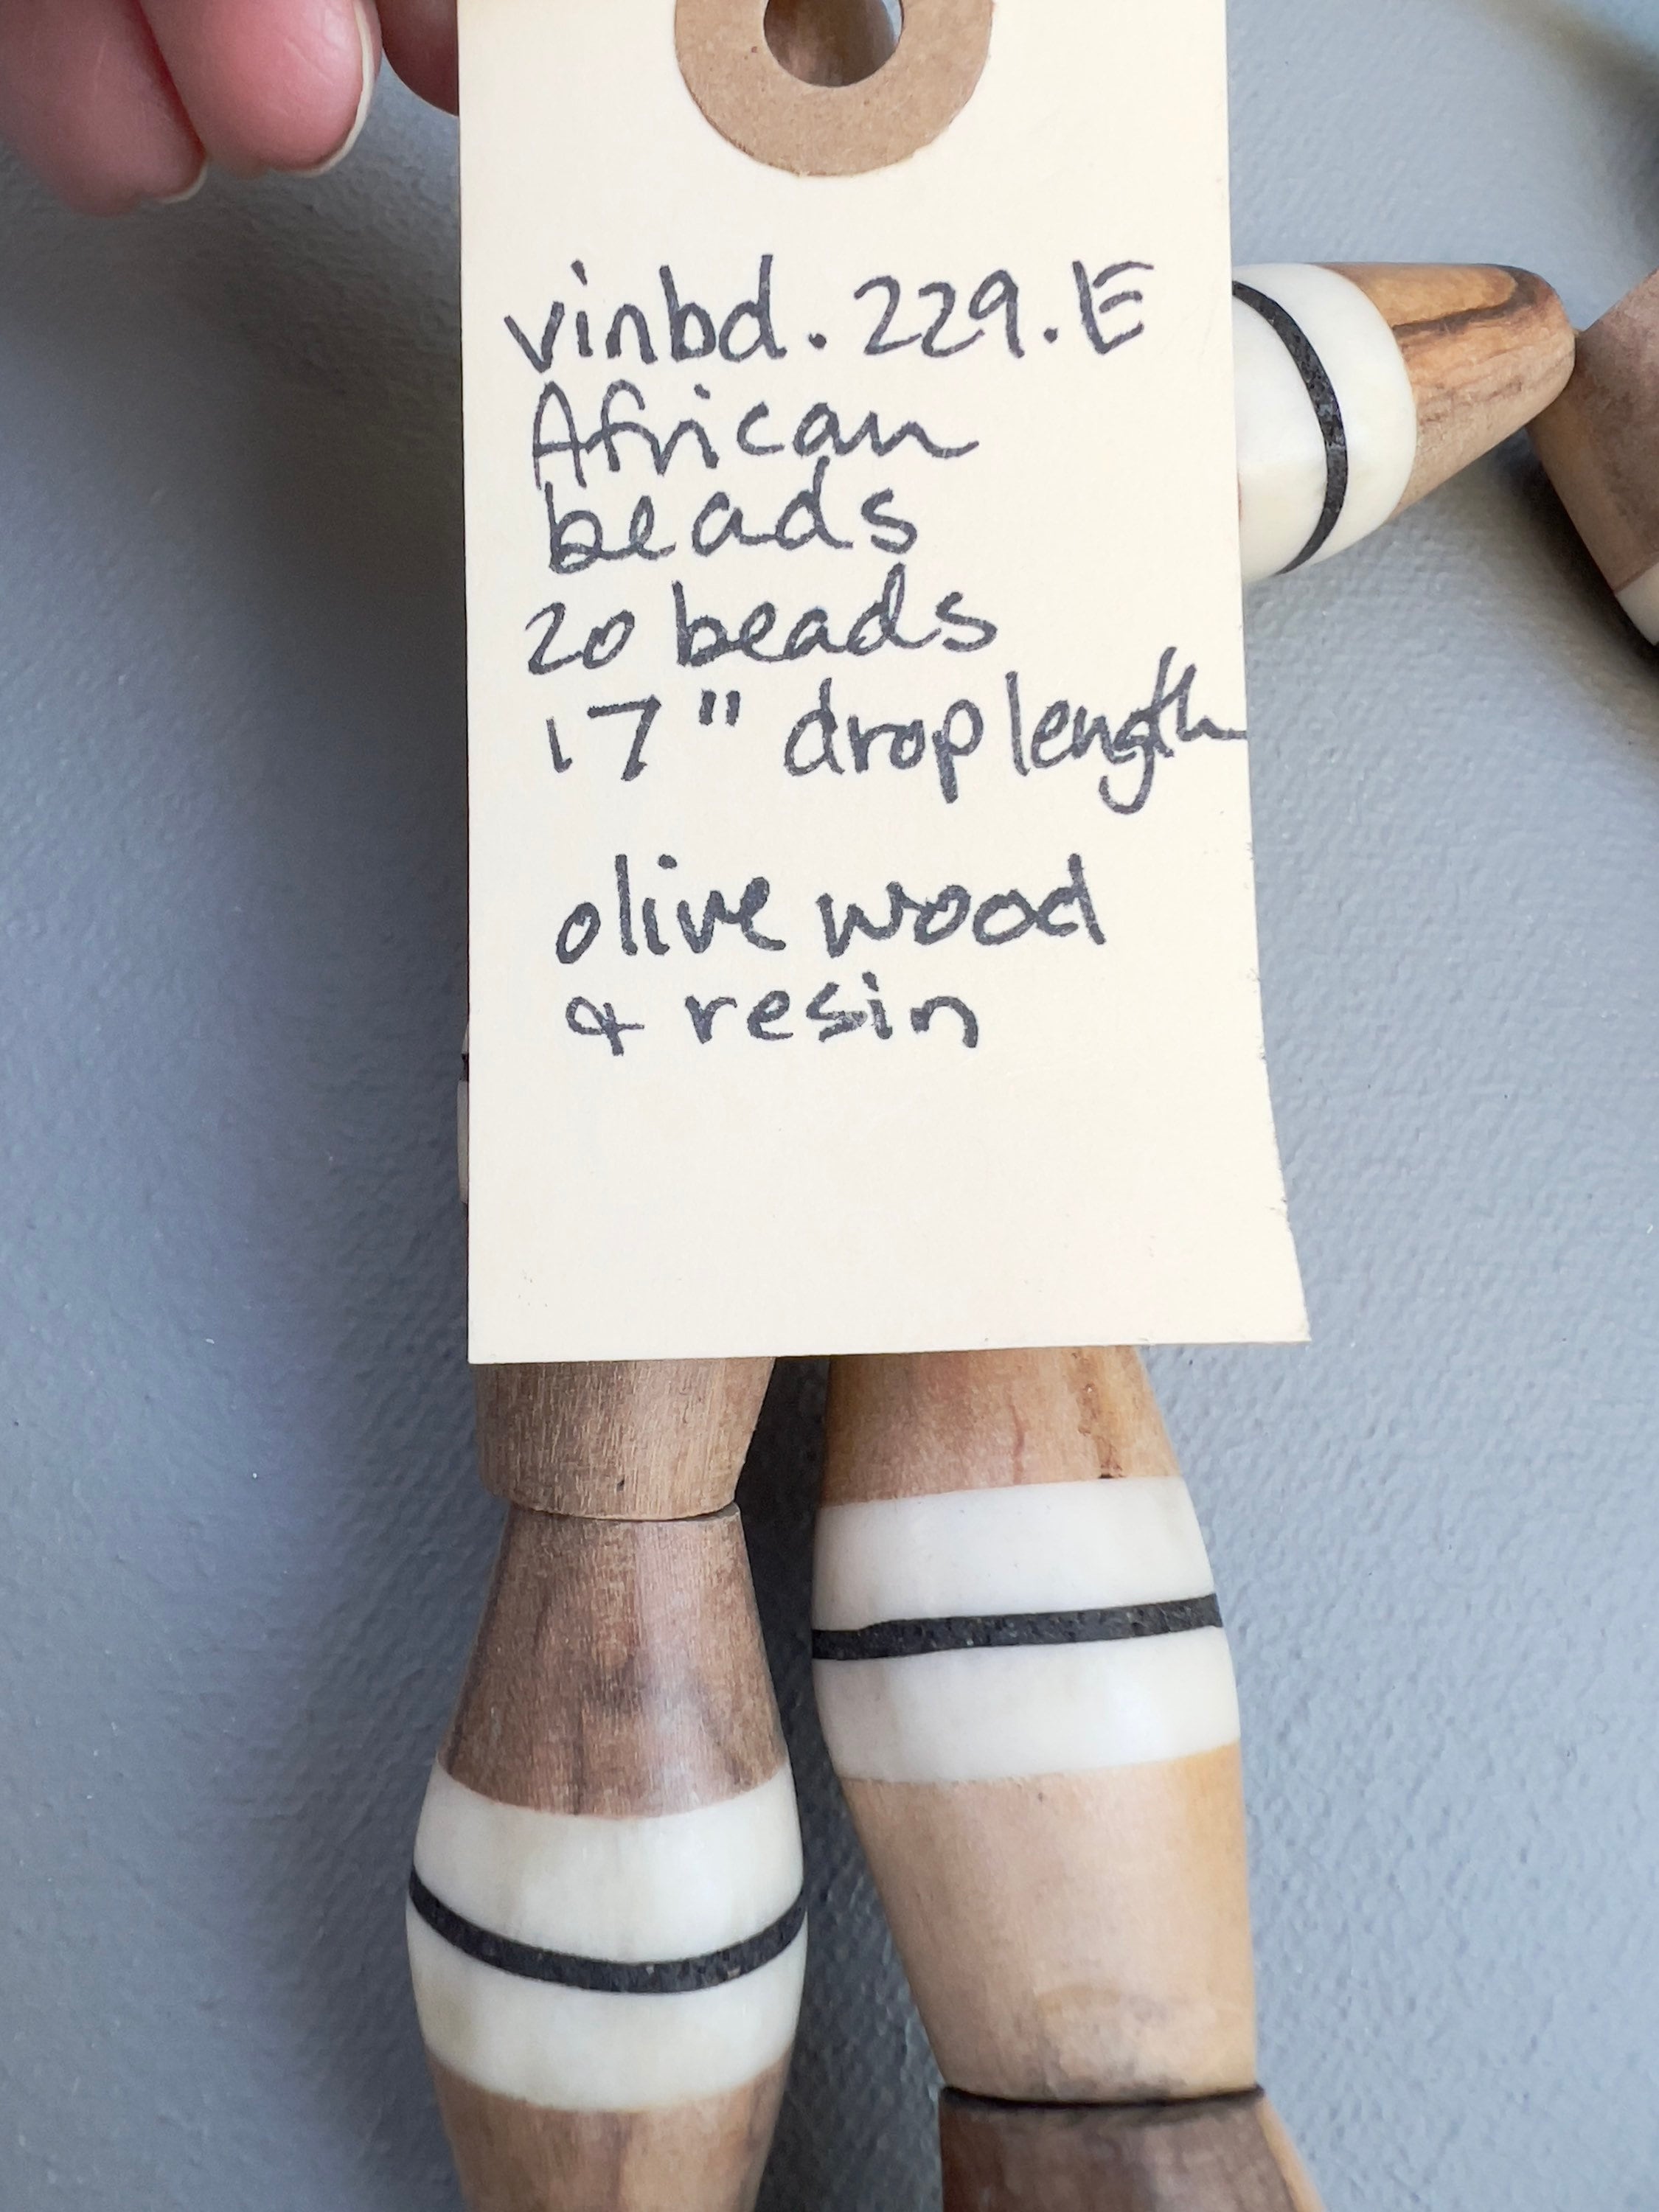 vinbd.229.E
African
beads
20 beads
17" drop length
olive wood
& resin